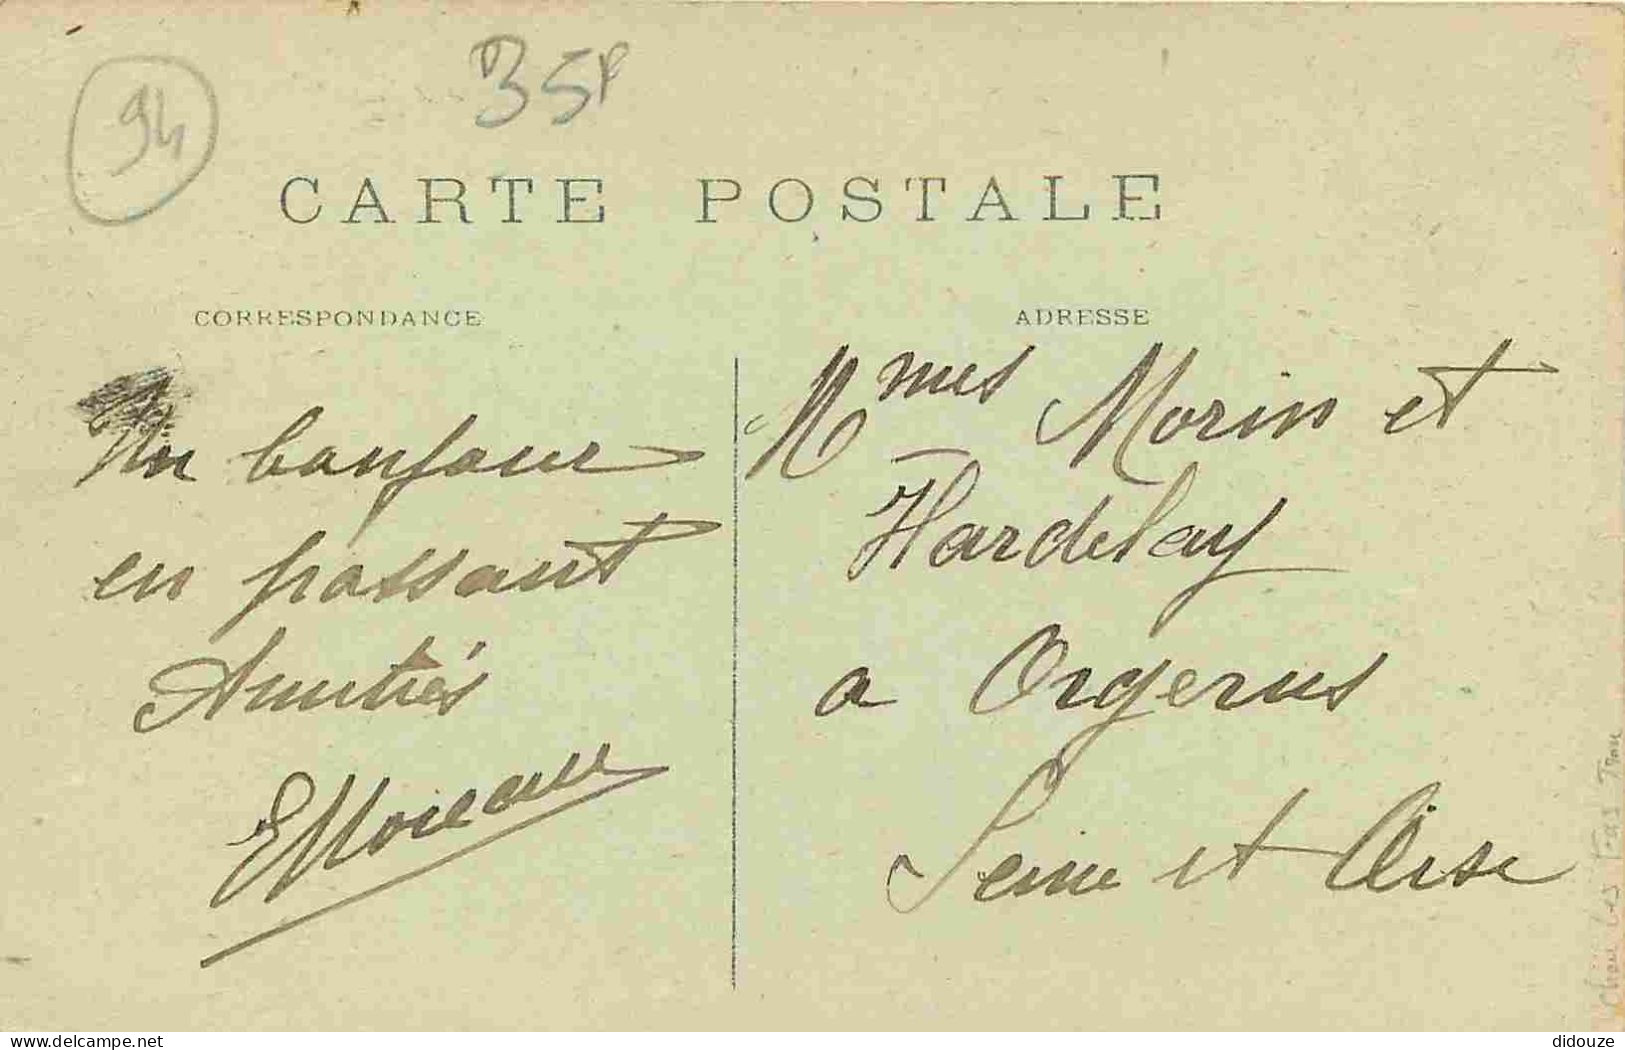 94
35F
CARTE POSTALE
CORRESPONDANCE
Un bonjour
en passant
Amitiés
EMoreau
ADRESSE
Mmes Morin et
Hardelay
a Orgerus
Seine et Oise
www.delcampe.net
didouze